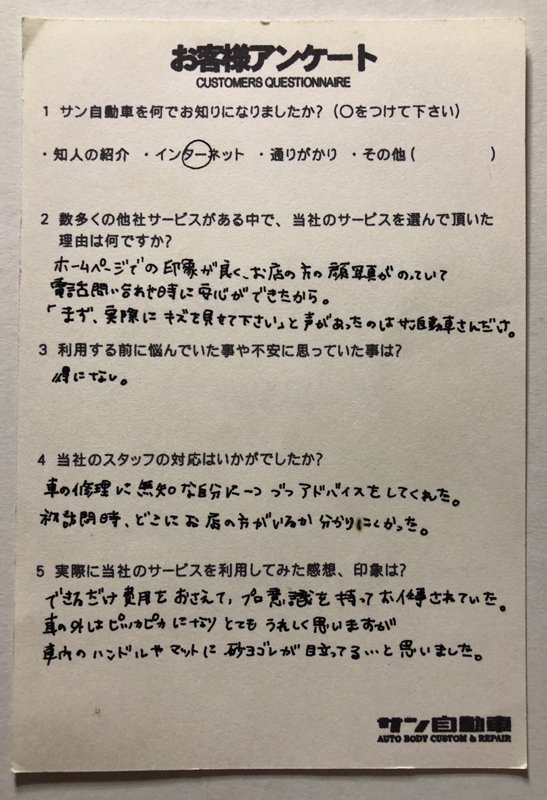 お客様アンケート
CUSTOMERS QUESTIONNAIRE
1 サン自動車を何でお知りになりましたか?(〇をつけて下さい)
・知人の紹介 ・インターネット ・通りがかり ・その他( )
2 数多くの他社サービスがある中で、当社のサービスを選んで頂いた
理由は何ですか?
ホームページでの印象が良く、お店の方の顔写真がのっていて
電話問い合わせ時に安心ができたから。
「まず、実際にキズを見せて下さい」と声があったのはサン自動車さんだけ。
3 利用する前に悩んでいた事や不安に思っていた事は?
特になし。
4 当社のスタッフの対応はいかがでしたか?
車の修理に無知な自分に一つづつアドバイスをしてくれた。
初訪問時、どこにお店の方がいるか分かりにくかった。
5 実際に当社のサービスを利用してみた感想、印象は?
できるだけ費用をおさえて、プロ意識を持ってお仕事されていた。
車の外はピッカピカになりとてもうれしく思いますが
車内のハンドルやマットに砂ヨゴレが目立ってる…と思いました。
サン自動車
AUTO BODY CUSTOM & REPAIR